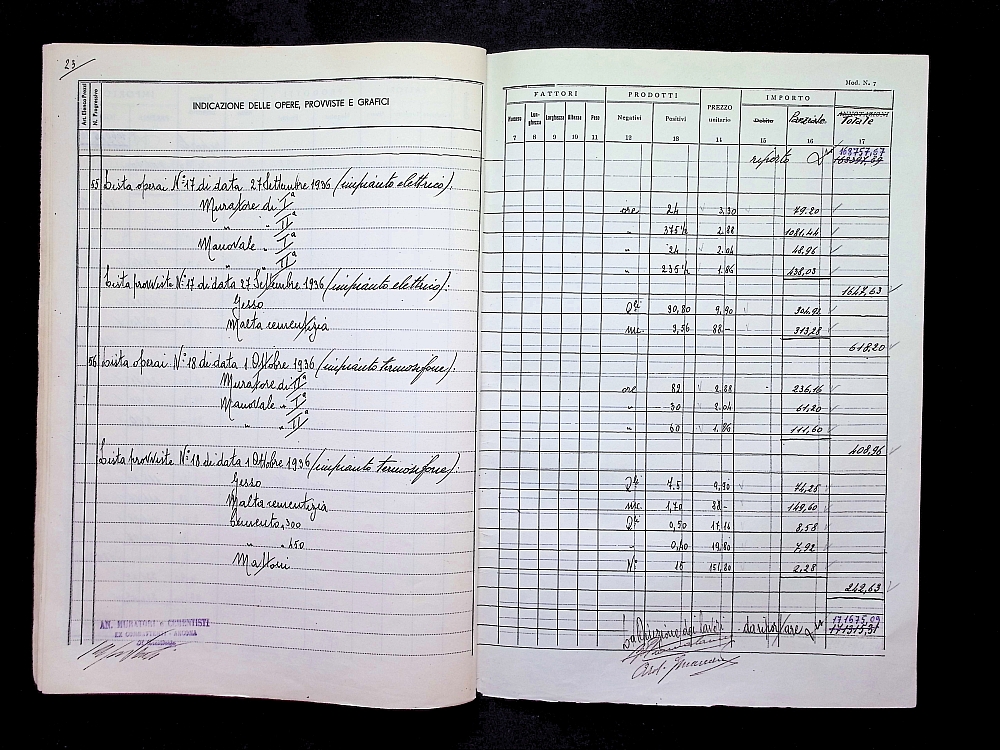 23
Mod. N. 7
Art. Elenco Prezzi
N. Progressivo
INDICAZIONE DELLE OPERE, PROVVISTE E GRAFICI
FATTORI PRODOTTI PREZZO unitario IMPORTO
Numero Lunghezza Larghezza Altezza Peso Negativi Positivi Debito Parziale Totale
7 8 9 10 11 12 13 14 15 16 17
riporto L. 168757,67
55 Lista operai N° 17 di data 27 Settembre 1936 (impianto elettrico):
Muratore di Iª ore 24 3.30 79.20
" " IIª " 375½ 2.88 1081,44
Manovale " Iª " 24 2.04 48,96
" " IIª " 235½ 1.86 438,03
1647,63
Lista provviste N° 17 di data 27 Settembre 1936 (impianto elettrico):
Gesso Qli 30,80 9,90 304,92
Malta cementizia mc. 3,56 88- 313,28
618,20
56 Lista operai N° 18 di data 1 Ottobre 1936 (impianto termosifone):
Muratore di IIª ore 82 2.88 236,16
Manovale " Iª " 30 2.04 61,20
" " IIª " 60 1.86 111,60
408,96
Lista provviste N° 18 di data 1 Ottobre 1936 (impianto termosifone):
Gesso Qli 7.5 9,90 74,25
Malta cementizia mc. 1,70 88- 149,60
Cemento 300 Qli 0,50 17.16 8,58
" " 450 " 0,40 19,80 7,92
Mattoni N° 15 151,80 2,28
242,63
La Direzione dei lavori da riportare L. 171675,09
171315,31
AN. MURATORI e CEMENTISTI
EX COMBATTENTI - ANCONA